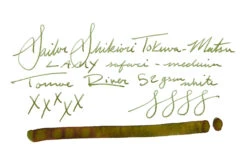 Sailor Shikiori Tokiwa-Matsu
LAMY safari - medium
Tomoe River 52 gsm
white
XXXXX